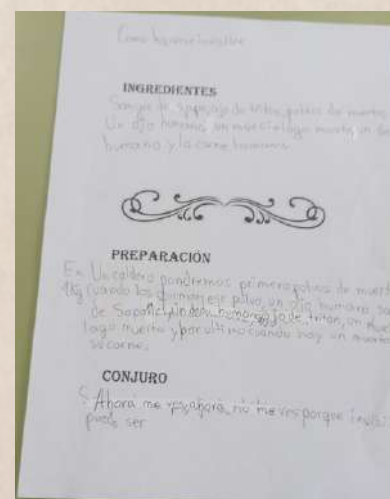 Como hacerse invisible
INGREDIENTES
Sangre de sapo, ojo de tritón, polvos de muerto
Un ojo humano, un murciélago muerto, un
humano y la carne humana.
PREPARACIÓN
En Un caldero pondremos primero polvos de muert
1kg cuando los ese polvo, un ojo humano, sa
de Sapo humano, ojo de tritón, un mur
lago muerto y por ultimo cuando hay un muerto
su carne.
CONJURO
Ahora me ves, ahora no me ves porque invisi
puedo ser